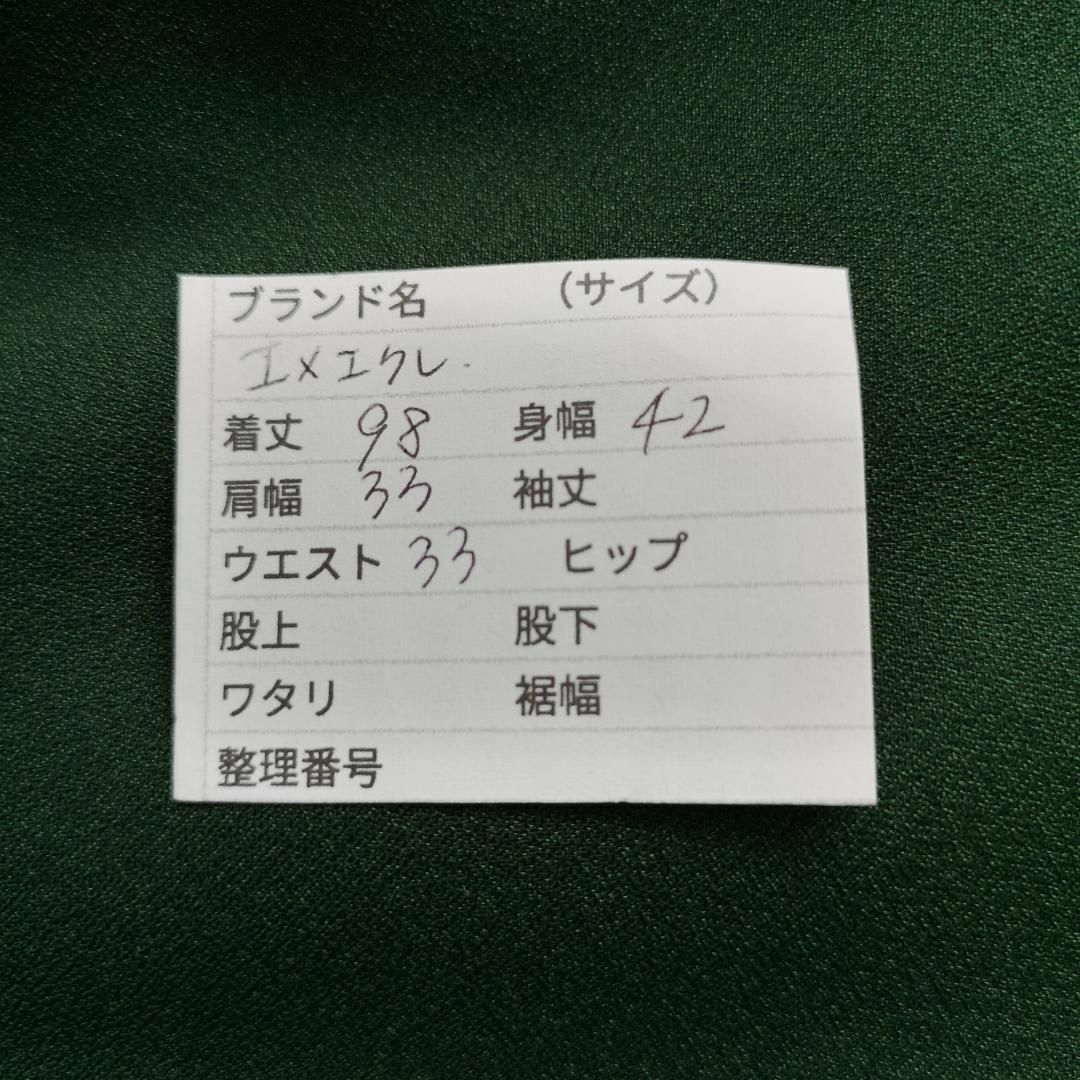 ブランド名 （サイズ）
エメエクレ.
着丈 98 身幅 42
肩幅 33 袖丈
ウエスト 33 ヒップ
股上 股下
ワタリ 裾幅
整理番号